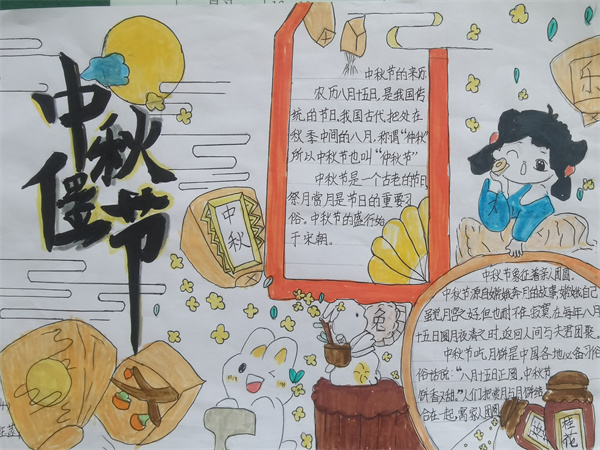 中秋佳节
中秋
中秋节的来历
农历八月十五日,是我国传
统的节日,我国古代把处在
秋季中间的八月,称谓"仲秋"
所以中秋节也叫"仲秋节"
中秋节是一个古老的节日
祭月赏月是节日的重要习
俗、中秋节的盛行始
于宋朝。
乐
兔
中秋节象征着亲人团圆。
中秋节源自嫦娥奔月的故事,嫦娥自己
虽说月宫之好,但也耐不住寂寞,在每年八月
十五日圆月夜清之时,返回人间与夫君团聚。
中秋节吃月饼是中国各地必备习俗
俗话说:"八月十五正圆,中秋节
饼香又甜。"人们把赏月与月饼结
合在一起,寓家人团圆
桂
花